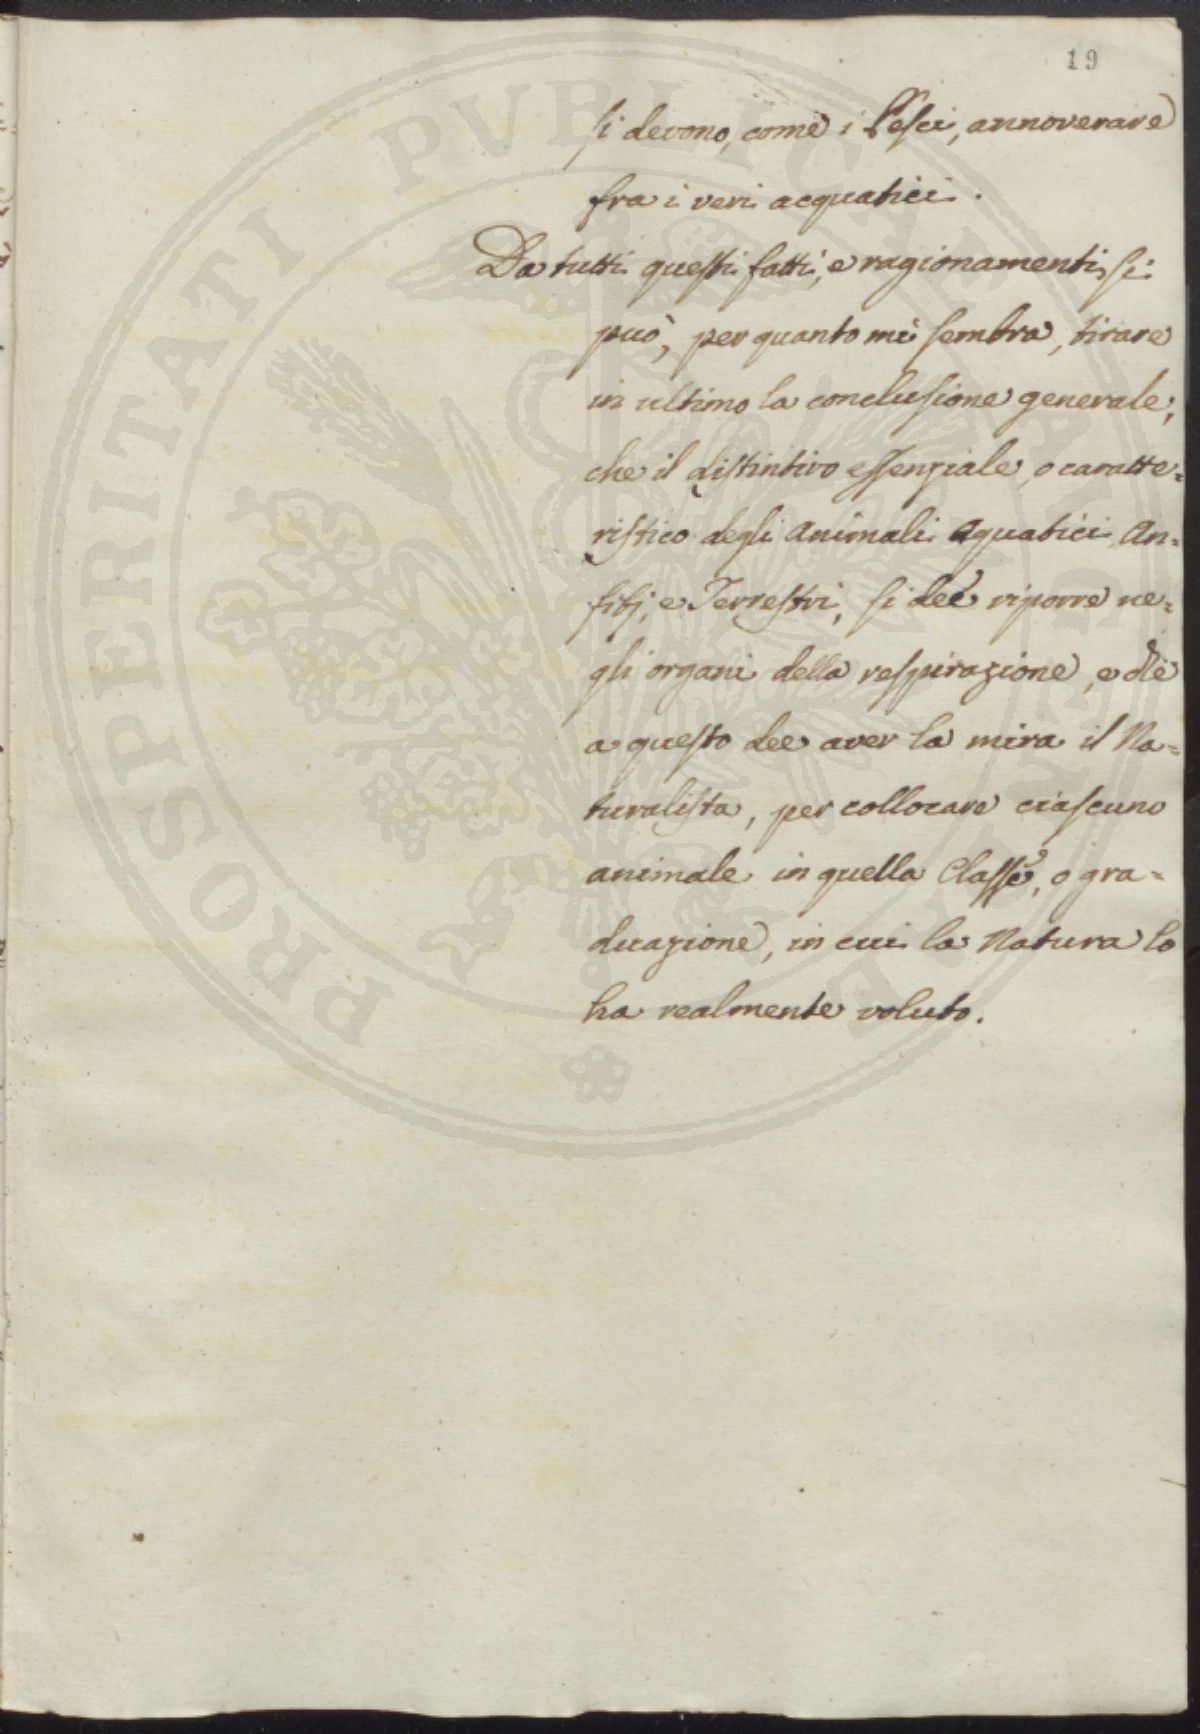 19
si devono, come i Pesci, annoverare
fra i veri acquatici.
Da tutti questi fatti, e ragionamenti si
può, per quanto mi sembra, tirare
in ultimo la conclusione generale,
che il distintivo essenziale, o caratte=
ristico degli Animali Aquatici, An=
fibj, e Terrestri, si dee riporre ne=
gli organi della respirazione, e che
a questo dee aver la mira il Na=
turalista, per collocare ciascuno
animale in quella Classe, o gra=
duazione, in cui la Natura lo
ha realmente voluto.
PROSPERITATI PUBLICAE